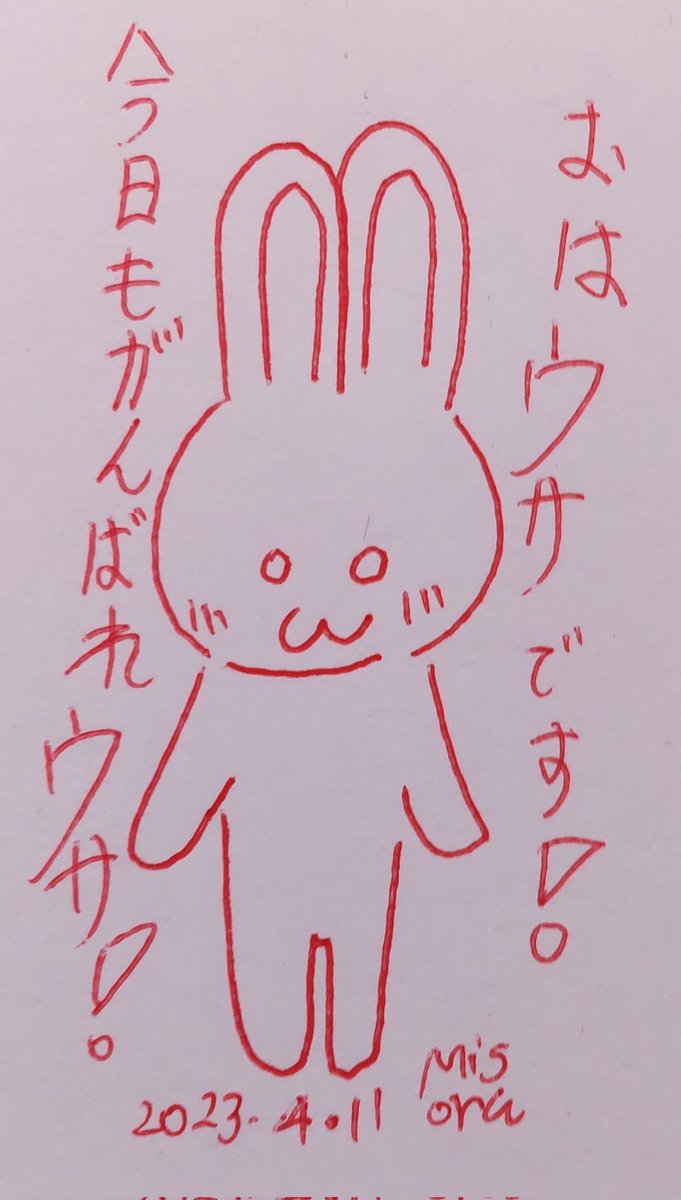 おはウサです!
今日もがんばれウサ!
2023.4.11
Mis
ora